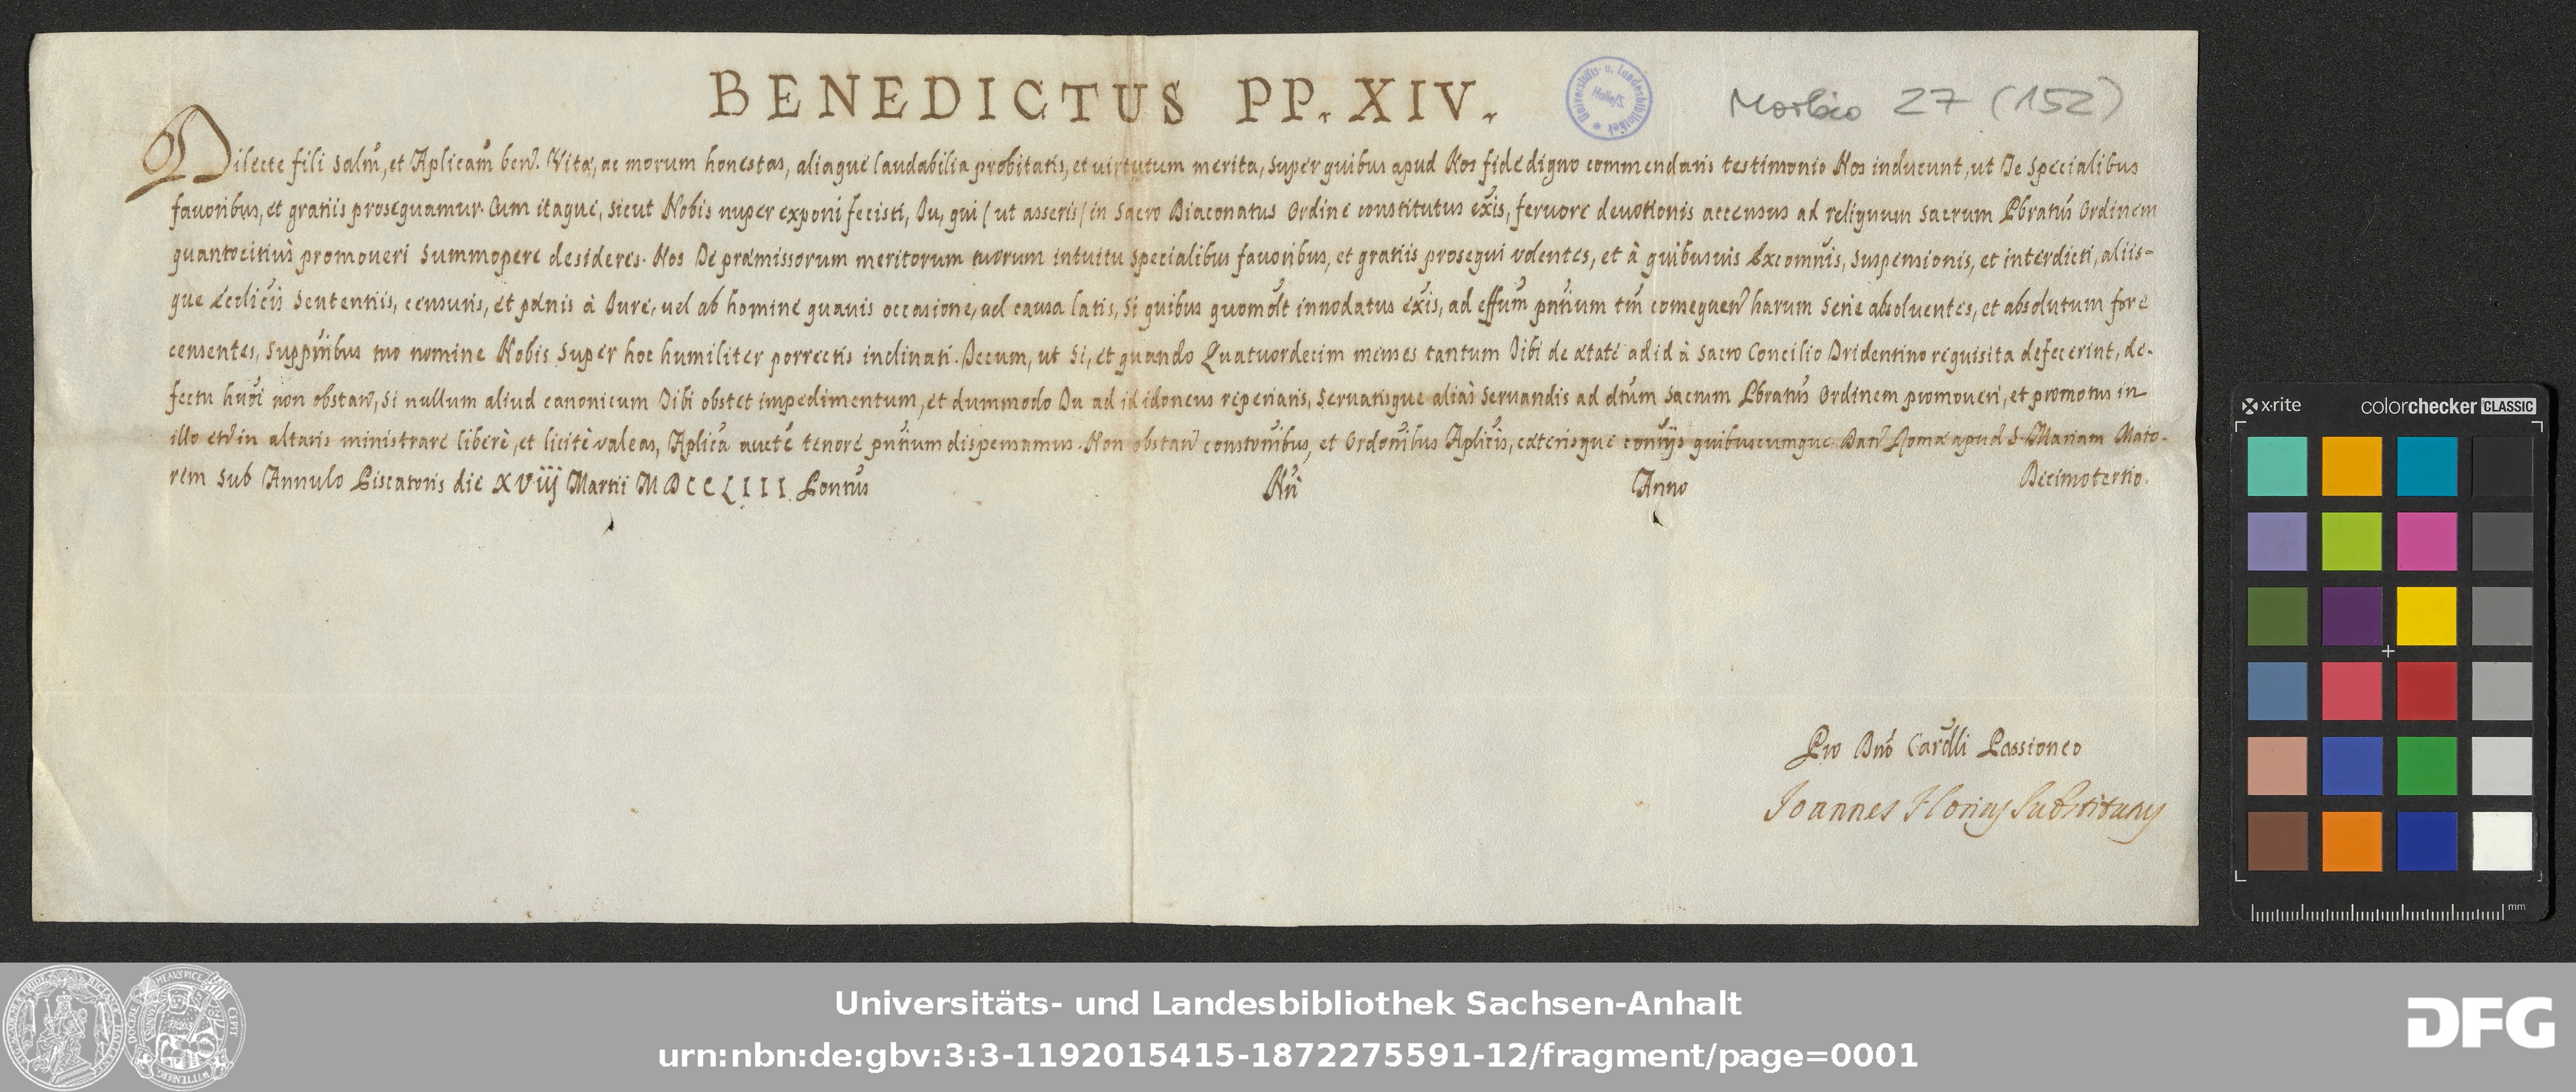 BENEDICTUS PP. XIV.
Universitäts- u. Landesbibliothek
Halle/S.
Morbio 27 (152)
Dilecte fili salm̃, et Aplicam̃ beñ. Vitæ, ac morum honestas, aliaque laudabilia probitatis, et virtutum merita, super quibus apud Nos fide digno commendaris testimonio Nos inducunt, ut Te specialibus
favoribus, et gratiis prosequamur. Cum itaque, sicut Nobis nuper exponi fecisti, Tu, qui (ut asseris) in Sacro Diaconatus Ordine constitutus exĩs, fervore devotionis accensus ad reliquum Sacrum Pbratũs Ordinem
quantocitiùs promoveri summopere desideres. Nos Te præmissorum meritorum tuorum intuitu specialibus favoribus, et gratiis prosequi volentes, et à quibusvis Excomnĩs, suspensionis, et interdicti, aliis-
que Ecclicĩs sententiis, censuris, et pœnis à Jure, vel ab homine quavis occasione, vel causa latis, si quibus quomolt̃ innodatus exĩs, ad effum̃ pñtium tm̃ consequeñ harum serie absolventes, et absolutum fore
censentes, supplñibus tuo nomine Nobis super hoc humiliter porrectis inclinati. Tecum, ut si, et quando Quatuordecim menses tantum Tibi de ætate ad id à Sacro Concilio Tridentino requisita defecerint, de-
fectu huõi non obstañ, si nullum aliud canonicum Tibi obstet impedimentum, et dummodo Tu ad id idoneus reperiaris, servatisque aliàs servandis ad dtũm Sacrum Pbratũs Ordinem promoveri, et promotus in
illo etĩ in altaris ministrare liberè, et licitè valeas, Aplicã aucte͂ tenore pñtium dispensamus. Non obstañ constoñibus, et Ordoñibus Aplicĩs, cæterisque contrĩjs quibuscumque. Dat̃ Romæ apud S. Mariam Majo-
rem sub Annulo Piscatoris die XVIIJ Martii MDCCLIII. Pontũs Nr̃i Anno Decimotertio.
Pro Dnõ Cardĩli Passioneo
Joannes Florius Substitutus
x·rite colorchecker CLASSIC
mm
Universitäts- und Landesbibliothek Sachsen-Anhalt
urn:nbn:de:gbv:3:3-1192015415-1872275591-12/fragment/page=0001
DFG